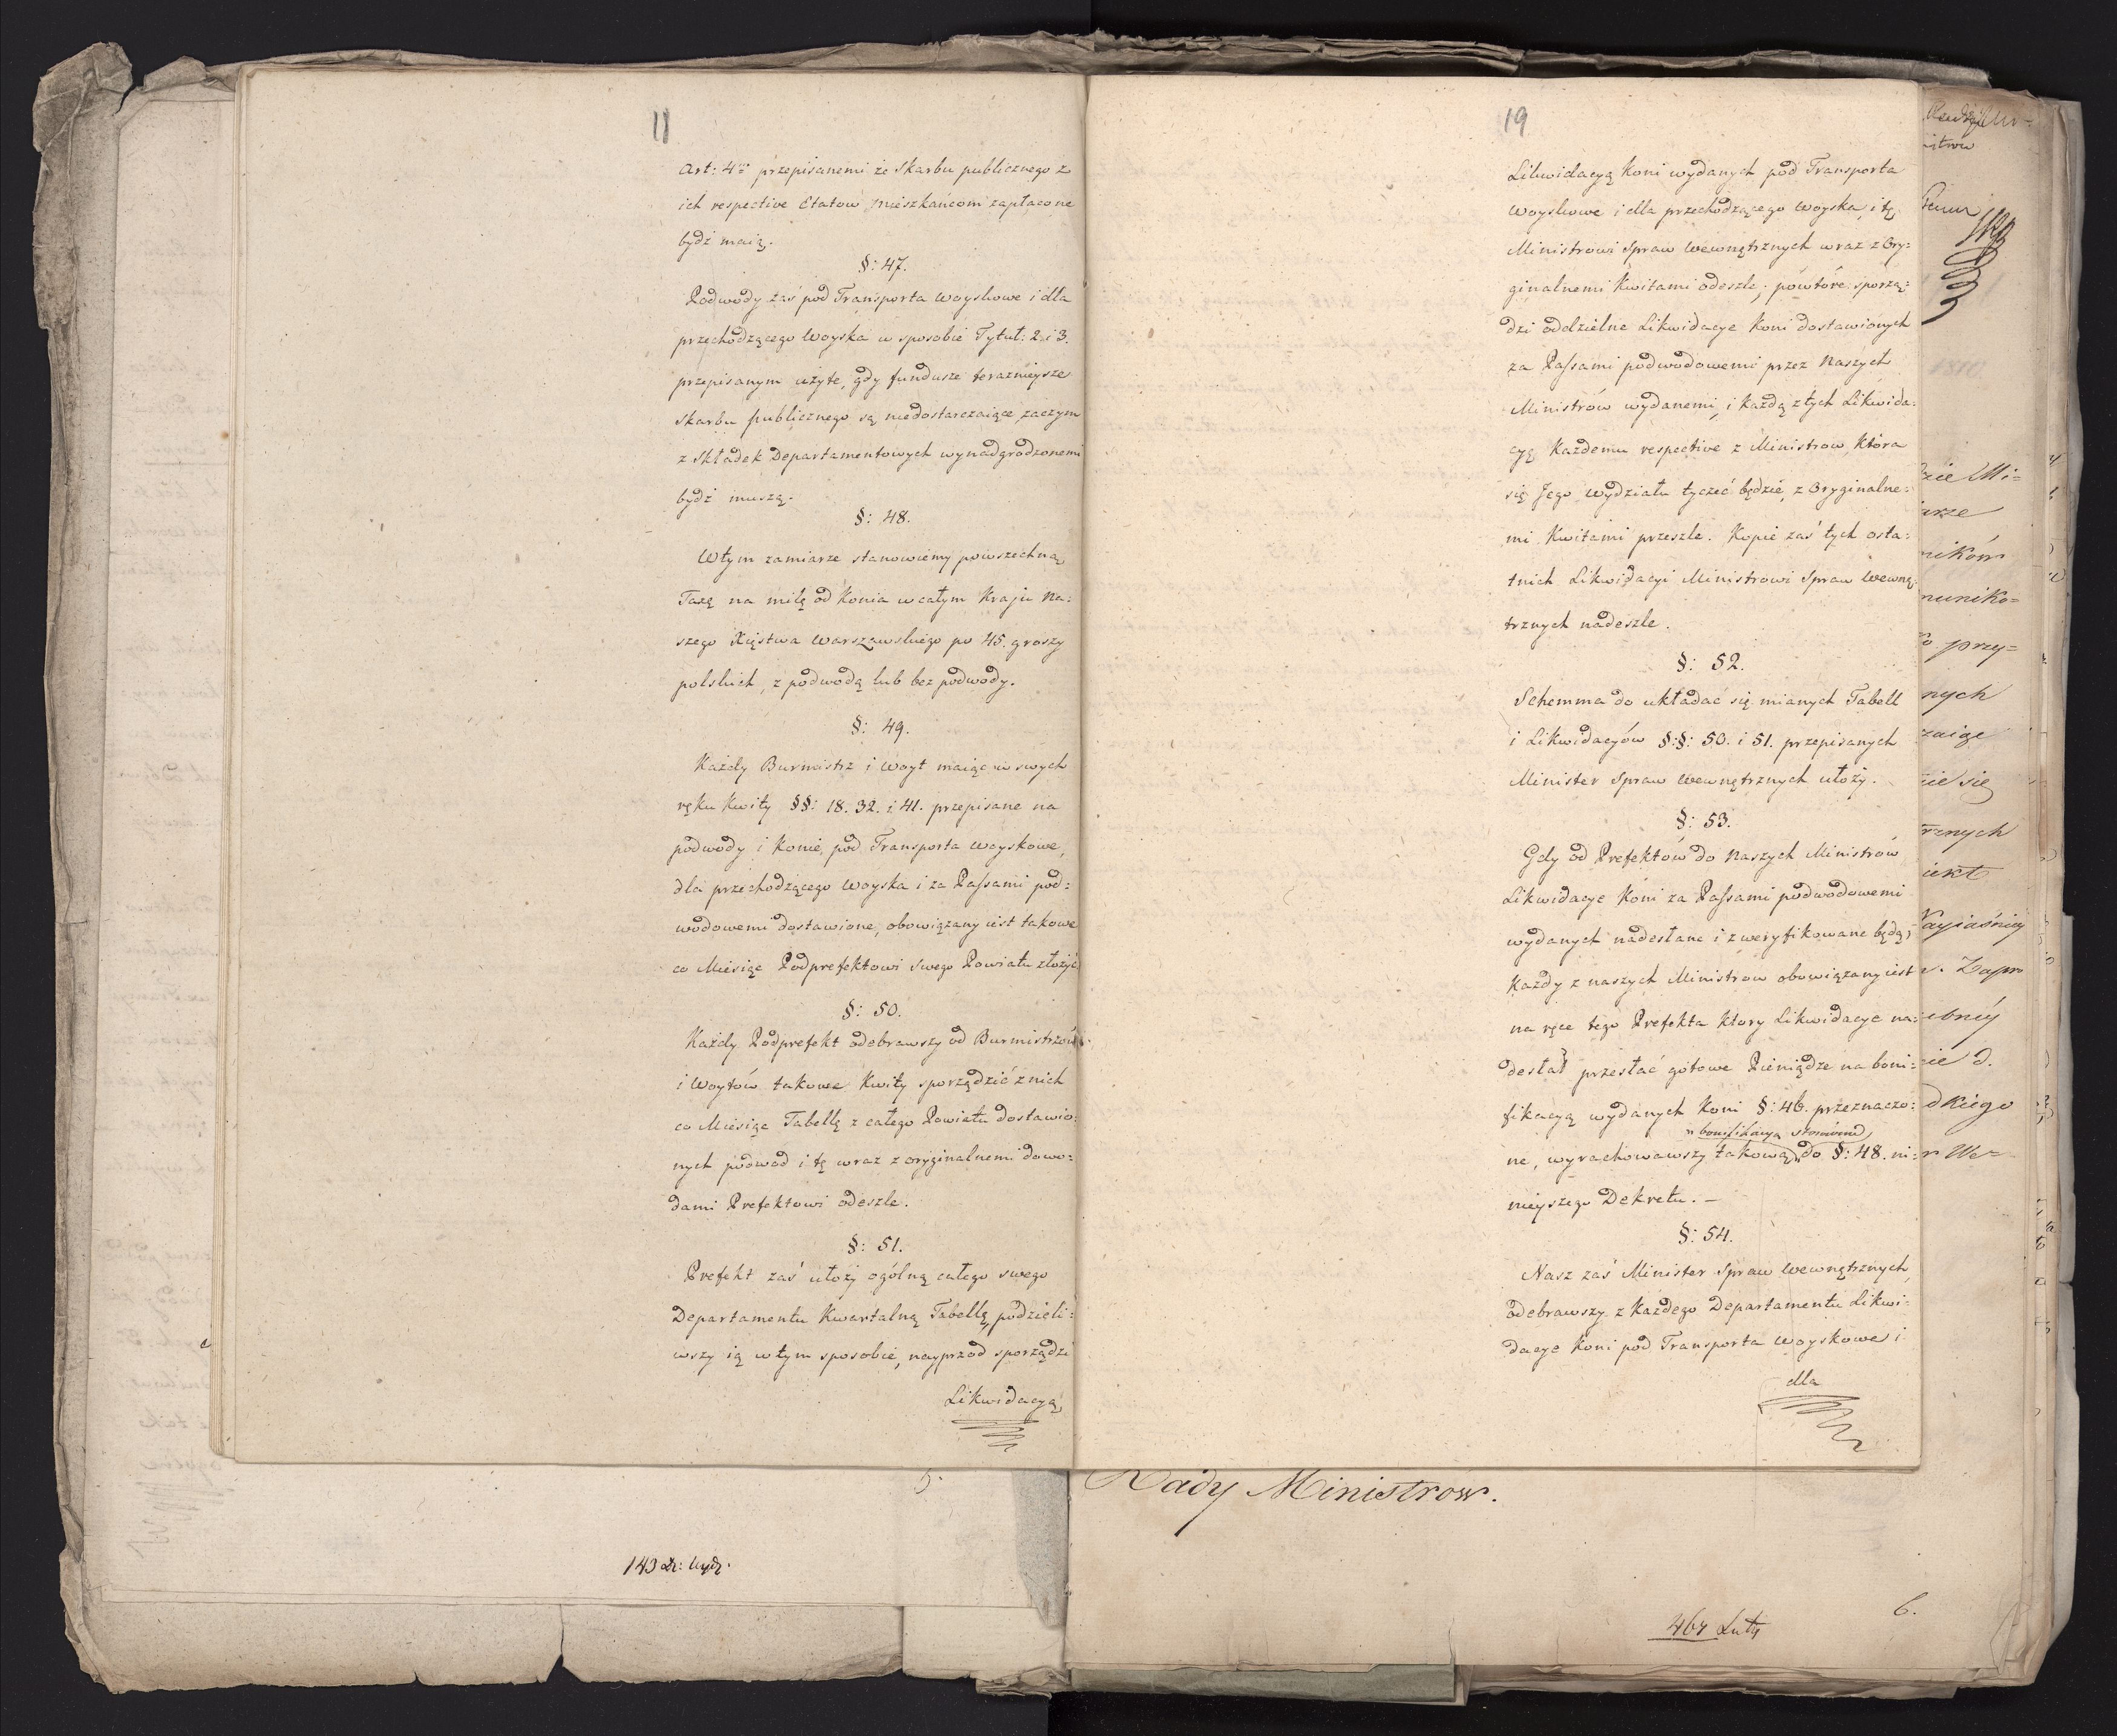 11
Art: 4to przepisanemi ze Skarbu publicznego z
ich respective Etatow Mieszkańcom zapłacone
bydź maią.
§: 47.
Podwody zaś pod Transporta Woyskowe i dla
przechodzącego Woyska w sposobie Tytuł: 2. i 3.
przepisanym użyte, gdy fundusze teraznieysze
Skarbu publicznego są niedostarczaiące, zaczym
z Składek Departamentowych wynadgrodzonemi
bydź muszą.
§: 48.
Wtym zamiarze stanowiemy powszechną
Taxę na milę od Konia w całym Kraju Na:
szego Xięstwa Warszawskiego po 45. groszy
polskich, z podwodą lub bez podwody.
§: 49.
Każdy Burmistrz i Woyt maiąc w swych
ręku Kwity §§: 18. 32. i 41. przepisane na
podwody i Konie, pod Transporta Woyskowe,
dla przechodzącego Woyska i za Passami pod:
wodowemi dostawione, obowiązany iest takowe
co Miesiąc Podprefektowi Swego Powiatu złożyć
§: 50.
Każdy Podprefekt odebrawszy od Burmistrzów
i Woytów takowe Kwity sporządzić z nich
co Miesiąc Tabellę z całego Powiatu dostawio:
nych podwod i tę wraz z oryginalnemi dowo:
dami Prefektowi odeszle.
§: 51.
Prefekt zaś ułoży ogólną całego swego
Departamentu Kwartalną Tabellę, podzieli:
wszy ią w tym sposobie, nayprzod sporządzi
Likwidacyą,
143 Dz: Wydz.
19
Likwidacyą Koni wydanych pod Transporta
Woyskowe i dla przechodzącego Woyska, i tę
Ministrowi Spraw Wewnętrznych wraz z Ory:
ginalnemi Kwitami odeszle; powtóre sporzą:
dzi oddzielne Likwidacye Koni dostawionych
za Passami podwodowemi przez Naszych
Ministrów wydanemi, i Każdą z tych Likwida:
cyą Każdemu respective z Ministrow, Która
się Jego Wydziału tyczeć będzie, z Oryginalne:
mi Kwitami przeszle. Kopie zaś tych osta:
tnich Likwidacyi Ministrowi Spraw Wewnę:
trznych nadeszle.
§: 52.
Schemma do układać się mianych Tabell
i Likwidacyów §:§: 50. i 51. przepisanych
Minister Spraw Wewnętrznych ułoży.
§: 53.
Gdy od Prefektów do Naszych Ministrów
Likwidacye Koni za Passami podwodowemi
wydanych nadesłane i zweryfikowane będą,
Każdy z naszych Ministrow obowiązany iest
na ręce tego Prefekta Ktory Likwidacye na:
desłał przesłać gotowe Pieniądze na boni:
fikacyą wydanych Koni §: 46. przeznaczo:
bonifikacyą stosównie
ne, wyrachowawszy takową do §: 48. ni:
nieyszego Dekretu. –
§: 54.
Nasz zaś Minister Spraw Wewnętrznych,
odebrawszy z Każdego Departamentu Likwi:
dacye Koni pod Transporta Woyskowe i
dla
Rady Ministrow.
467 Luty
6.
nikóm
muniko=
przy=
nych
zaiąc
zie się
rznych
iekt